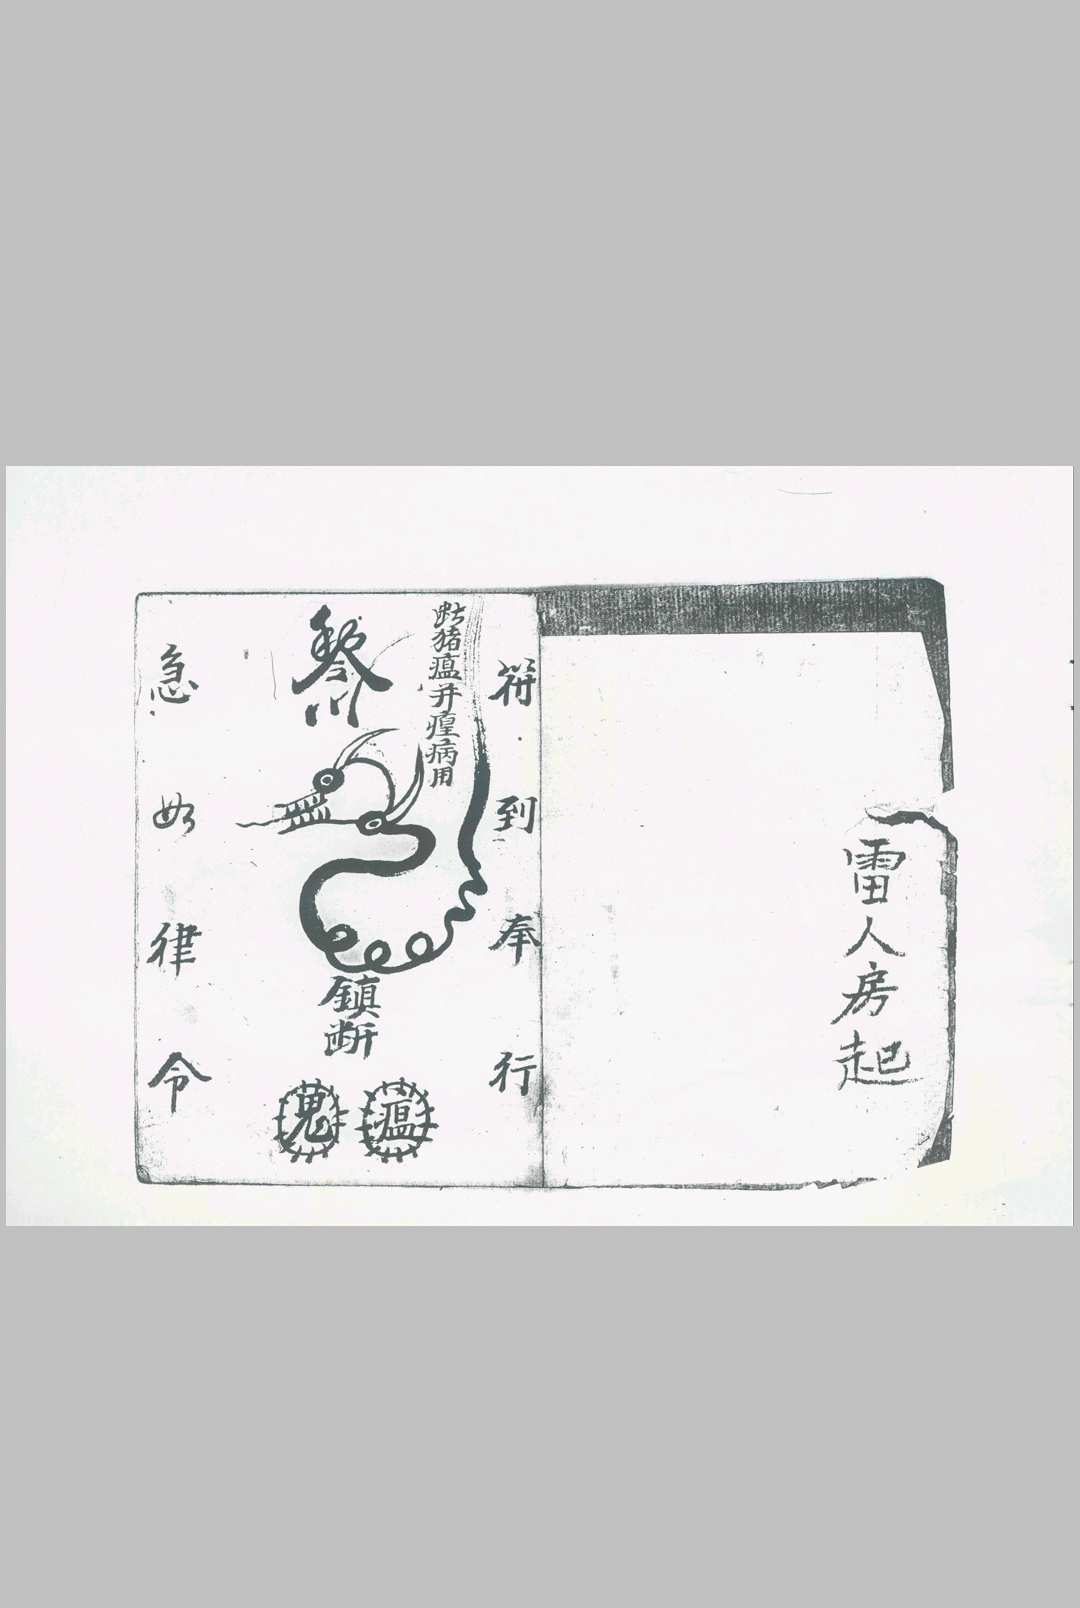 雷人房起
符到奉行
断猪瘟并瘟病用
鎮断
瘟
鬼
急如律令